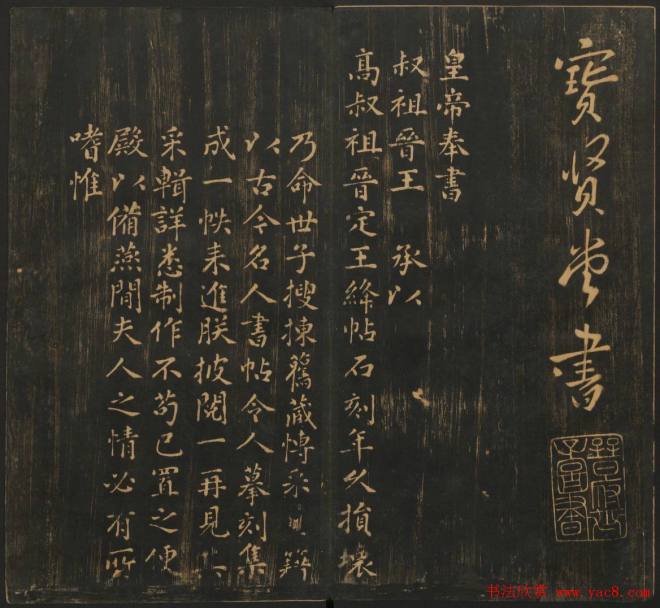 寳賢堂書
皇帝奉書
叔祖晉王 承以
高叔祖晉定王絳帖石刻年久損壞
乃命世子搜揀舊藏博采 籍
以古今名人書帖令人摹刻集
成一帙来進朕披閱一再見
采輯詳悉制作不苟已置之便
殿以備燕間夫人之情必有所
嗜惟
书法欣赏 www.yac8.com